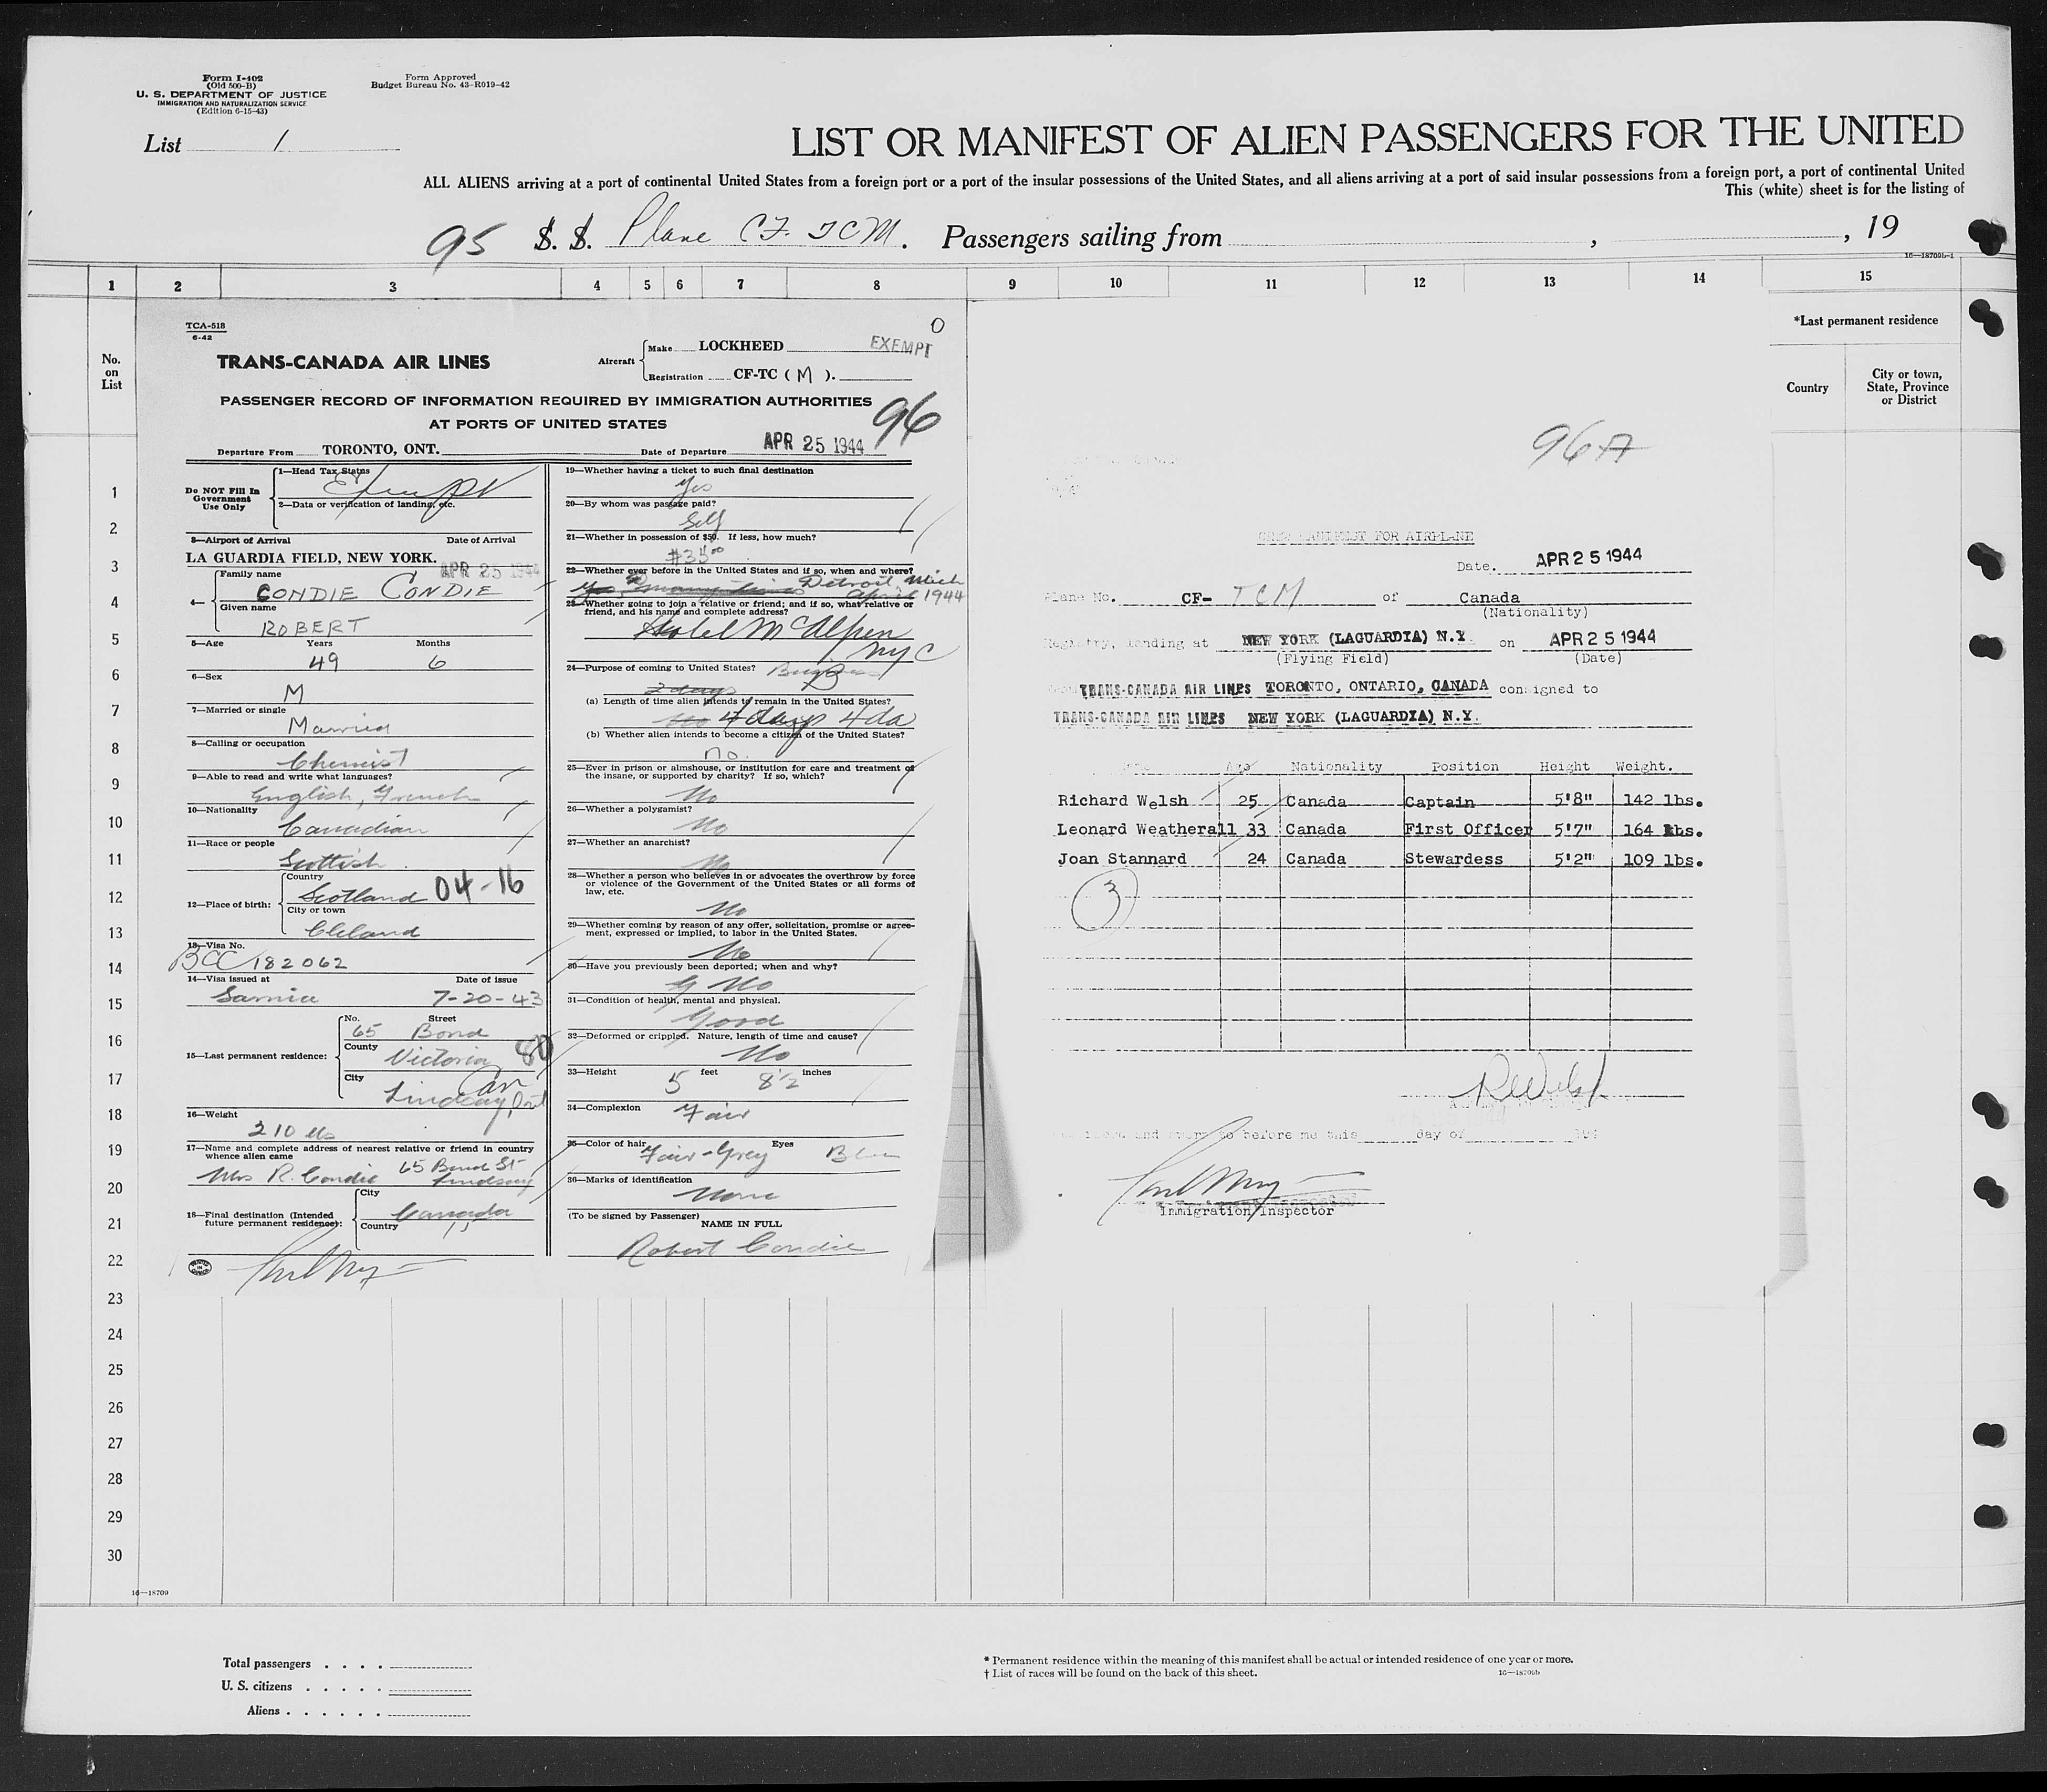 Form I-402
(Old 500-B)
U. S. DEPARTMENT OF JUSTICE
IMMIGRATION AND NATURALIZATION SERVICE
(Edition 6-15-43)
Form Approved
Budget Bureau No. 43-R019-42
List 1
LIST OR MANIFEST OF ALIEN PASSENGERS FOR THE UNITED
ALL ALIENS arriving at a port of continental United States from a foreign port or a port of the insular possessions of the United States, and all aliens arriving at a port of said insular possessions from a foreign port, a port of continental United
This (white) sheet is for the listing of
95 S. S. Plane CF. TCM. Passengers sailing from , , 19
16—18709b-1
1 2 3 4 5 6 7 8 9 10 11 12 13 14 15
No. on List
*Last permanent residence
Country
City or town, State, Province or District
TCA-518
6-42
0
TRANS-CANADA AIR LINES
Aircraft
Make LOCKHEED
EXEMPT
Registration CF-TC ( M ).
PASSENGER RECORD OF INFORMATION REQUIRED BY IMMIGRATION AUTHORITIES
AT PORTS OF UNITED STATES
96
Departure From TORONTO, ONT. Date of Departure APR 25 1944
Do NOT Fill In Government Use Only
1—Head Tax Status
Exempt
2—Data or verification of landing, etc.
3—Airport of Arrival Date of Arrival
LA GUARDIA FIELD, NEW YORK. APR 25 1944
4—
Family name
CONDIE CONDIE
Given name
ROBERT
5—Age Years Months
49 6
6—Sex
M
7—Married or single
Married
8—Calling or occupation
Chemist
9—Able to read and write what languages?
English, French
10—Nationality
Canadian
11—Race or people
Scottish
12—Place of birth:
Country
Scotland 04-16
City or town
Cleland
13—Visa No.
BCC 182062
14—Visa issued at Date of issue
Sarnia 7-20-43
15—Last permanent residence:
No. Street
65 Bond
County
Victoria 80
City
Can
Lindsay, Ont
16—Weight
210 lbs
17—Name and complete address of nearest relative or friend in country whence alien came
Mrs R. Condie 65 Bond St
Lindsay
18—Final destination (Intended future permanent residence):
City
Canada
Country
19—Whether having a ticket to such final destination
Yes
20—By whom was passage paid?
Self
21—Whether in possession of $50. If less, how much?
$35.00
22—Whether ever before in the United States and if so, when and where?
Yes, Detroit, Mich
April 1944
23—Whether going to join a relative or friend; and if so, what relative or friend, and his name and complete address?
Hotel McAlpen
NYC
24—Purpose of coming to United States? Business
2 days B
(a) Length of time alien intends to remain in the United States?
4 days 4 da
(b) Whether alien intends to become a citizen of the United States?
no.
25—Ever in prison or almshouse, or institution for care and treatment of the insane, or supported by charity? If so, which?
No
26—Whether a polygamist?
No
27—Whether an anarchist?
No
28—Whether a person who believes in or advocates the overthrow by force or violence of the Government of the United States or all forms of law, etc.
No
29—Whether coming by reason of any offer, solicitation, promise or agreement, expressed or implied, to labor in the United States.
No
30—Have you previously been deported; when and why?
No
31—Condition of health, mental and physical.
Good
32—Deformed or crippled. Nature, length of time and cause?
No
33—Height 5 feet 8½ inches
34—Complexion Fair
35—Color of hair Fair-Grey Eyes Blue
36—Marks of identification
None
(To be signed by Passenger)
NAME IN FULL
Robert Condie
96A
CREW MANIFEST FOR AIRPLANE
Date. APR 25 1944
Plane No. CF- TCM of Canada
(Nationality)
Registry, landing at NEW YORK (LAGUARDIA) N.Y. on APR 25 1944
(Flying Field) (Date)
TRANS-CANADA AIR LINES TORONTO, ONTARIO, CANADA consigned to
TRANS-CANADA AIR LINES NEW YORK (LAGUARDIA) N.Y.
Name Age Nationality Position Height Weight.
Richard Welsh 25 Canada Captain 5'8" 142 lbs.
Leonard Weatherall 33 Canada First Officer 5'7" 164 lbs.
Joan Stannard 24 Canada Stewardess 5'2" 109 lbs.
3
R Welsh
and sworn to before me this day of 194
Immigration Inspector
1
2
3
4
5
6
7
8
9
10
11
12
13
14
15
16
17
18
19
20
21
22
23
24
25
26
27
28
29
30
16—18709
Total passengers . . . .
U. S. citizens . . . . .
Aliens . . . . . .
* Permanent residence within the meaning of this manifest shall be actual or intended residence of one year or more.
† List of races will be found on the back of this sheet. 16—18709b